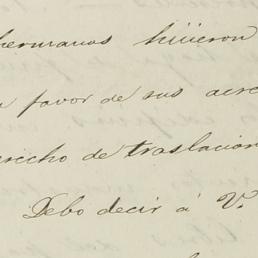 hermanos hicieron
favor de sus acre
erecho de traslacion
Debo decir á V.